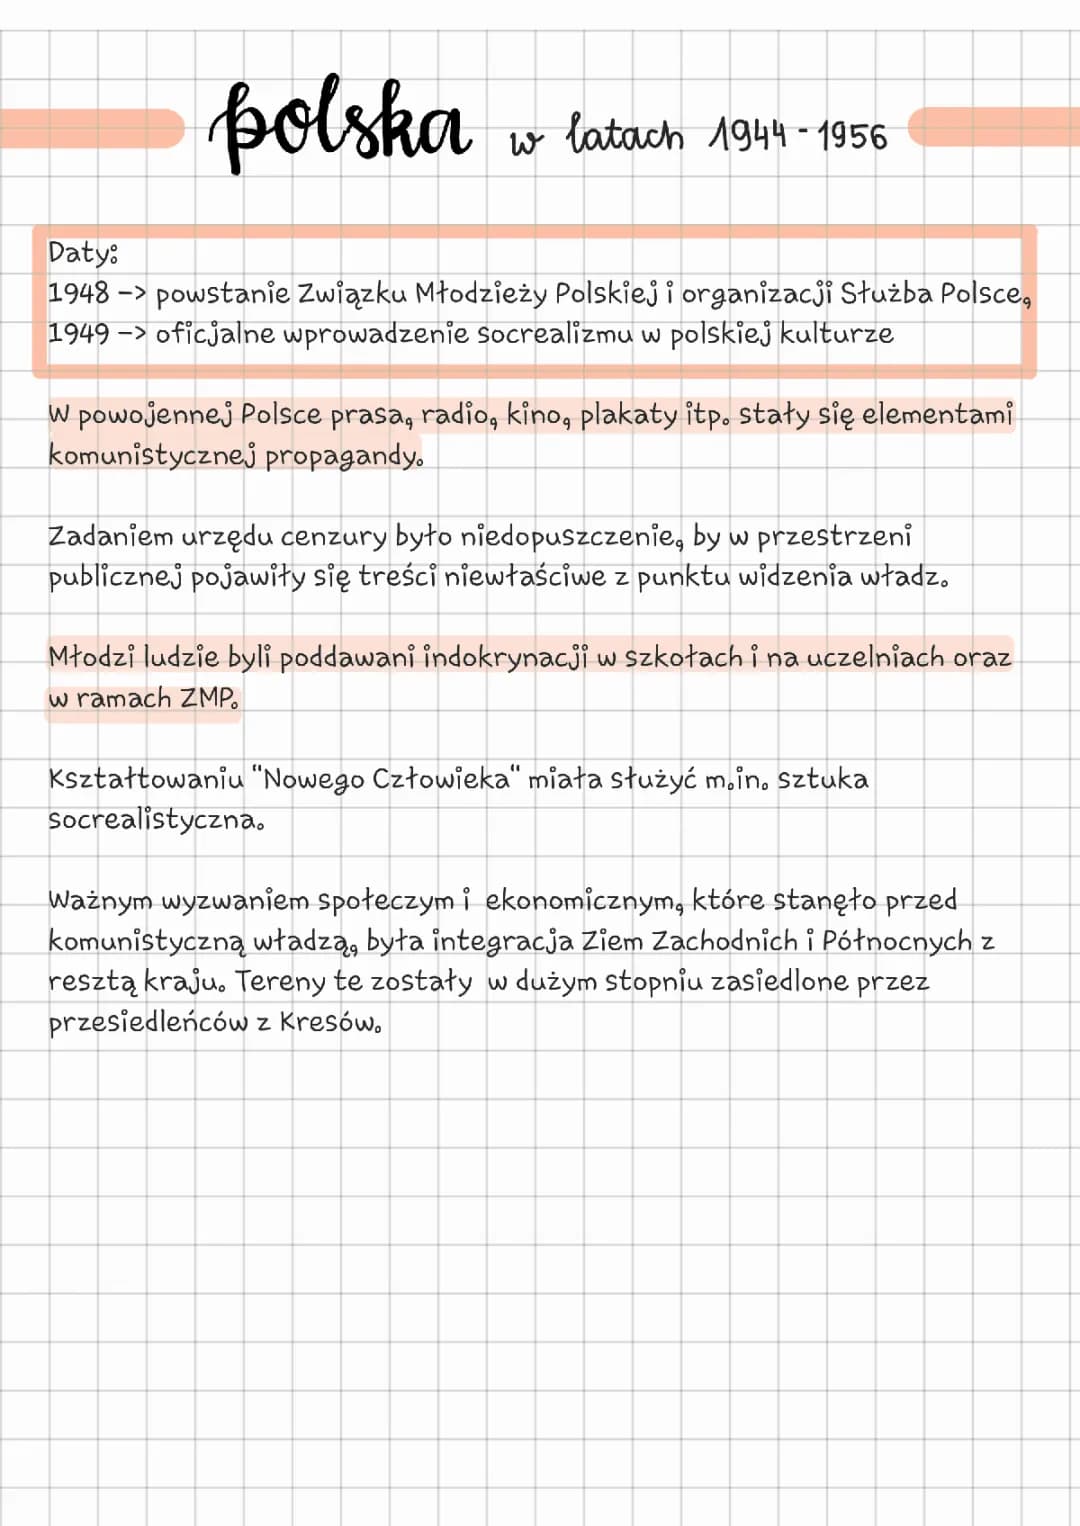 polska w latach 1944-1956
Daty:
1948 -> powstanie Związku Młodzieży Polskiej i organizacji Służba Polsce,
1949 -> oficjalne wprowadzenie socrealizmu w polskiej kulturze
W powojennej Polsce prasa, radio, kino, plakaty itp. stały się elementami
komunistycznej propagandy.
Zadaniem urzędu cenzury było niedopuszczenie, by w przestrzeni
publicznej pojawiły się treści niewłaściwe z punktu widzenia władz.
Młodzi ludzie byli poddawani indokrynacji w szkołach i na uczelniach oraz
w ramach ZMP.
Kształtowaniu "Nowego Człowieka" miała służyć m.in. sztuka
socrealistyczna.
Ważnym wyzwaniem społeczym i ekonomicznym, które stanęło przed
komunistyczną władzą, była integracja Ziem Zachodnich i Północnych z
resztą kraju. Tereny te zostały w dużym stopniu zasiedlone przez
przesiedleńców z Kresów.